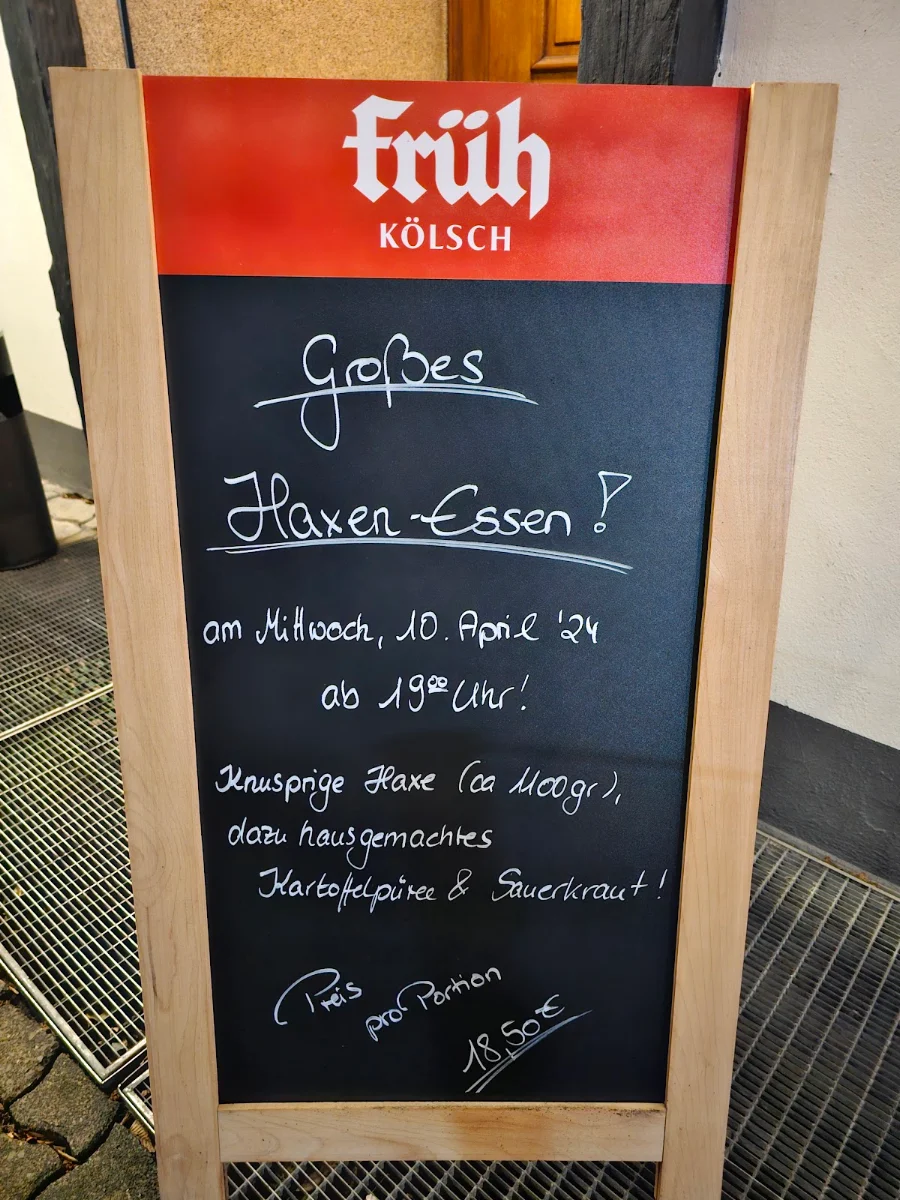 früh
KÖLSCH
Großes
Haxen-Essen!
am Mittwoch, 10. April '24
ab 19⁰⁰ Uhr!
Knusprige Haxe (ca 1100gr),
dazu hausgemachtes
Kartoffelpüree & Sauerkraut!
Preis
pro Portion
18,50€